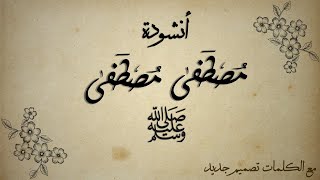 أنشودة
مُصْطَفَىٰ مُصْطَفَىٰ
صلى الله عليه وسلم
مع الكلمات تصميم جديد